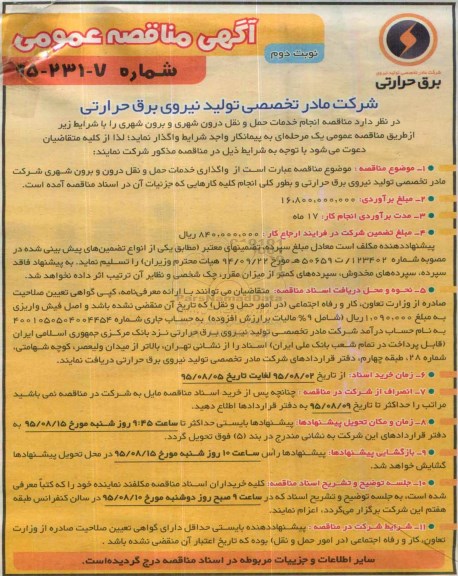 آگهی مناقصه عمومی
نوبت دوم
شماره ۷-۲۳۱-۹۵
شرکت مادر تخصصی تولید نیروی برق حرارتی
برق حرارتی
شرکت مادر تخصصی تولید نیروی برق حرارتی
در نظر دارد مناقصه انجام خدمات حمل و نقل درون شهری و برون شهری را با شرایط زیر
ازطریق مناقصه عمومی یک مرحله‌ای به پیمانکار واجد شرایط واگذار نماید؛ لذا از کلیه متقاضیان
دعوت می‌شود با توجه به شرایط ذیل در مناقصه مذکور شرکت نمایند:
۱- موضوع مناقصه : موضوع مناقصه عبارت است از واگذاری خدمات حمل و نقل درون و برون شهری شرکت
مادر تخصصی تولید نیروی برق حرارتی و بطور کلی انجام کلیه کارهایی که جزئیات آن در اسناد مناقصه آمده است.
۲- مبلغ برآوردی: ۱۶،۸۰۰،۰۰۰،۰۰۰
۳- مدت برآوردی انجام کار: ۱۷ ماه
۴- مبلغ تضمین شرکت در فرایند ارجاع کار : ۸۴۰،۰۰۰،۰۰۰ ریال
پیشنهاددهنده مکلف است معادل مبلغ سپرده، تضمینهای معتبر (مطابق یکی از انواع تضمین‌های پیش بینی شده در
مصوبه شماره ۱۲۳۴۰۲/ت ۵۰۶۵۹ هـ مورخ ۹۴/۰۹/۲۲ هیات محترم وزیران) را تسلیم نماید. به پیشنهاد فاقد
سپرده، سپرده‌های مخدوش، سپرده‌های کمتر از میزان مقرر، چک شخصی و نظایر آن ترتیب اثر داده نخواهد شد.
۵- نحوه و محل دریافت اسناد مناقصه: متقاضیان می توانند با ارائه معرفی‌نامه، کپی گواهی تعیین صلاحیت
صادره از وزارت تعاون، کار و رفاه اجتماعی (در امور حمل و نقل) که تاریخ آن منقضی نشده باشد و اصل فیش واریزی
به مبلغ ۱،۰۹۰،۰۰۰ ریال (شامل ۹% مالیات بر ارزش افزوده) به حساب جاری شماره
به نام حساب درآمد شرکت مادر تخصصی تولید نیروی برق حرارتی نزد بانک مرکزی جمهوری اسلامی ایران
(قابل پرداخت در تمام شعب بانک ملی ایران) اسناد را از نشانی تهران، بالاتر از میدان ولیعصر، کوچه شهامتی،
شماره ۲۸، طبقه چهارم، دفتر قراردادهای شرکت مادر تخصصی تولید نیروی برق حرارتی دریافت نمایند.
۶- زمان خرید اسناد: از تاریخ ۹۵/۰۸/۰۲ لغایت تاریخ ۹۵/۰۸/۰۵
۷- انصراف از شرکت در مناقصه : چنانچه پس از خرید اسناد مناقصه مایل به شرکت در مناقصه نمی باشید
مراتب را حداکثر تا تاریخ ۹۵/۰۸/۰۹ به دفتر قراردادها اطلاع دهید.
۸- زمان و مکان تحویل پیشنهادها: پیشنهادها بایستی حداکثر تا ساعت ۹:۴۵ روز شنبه مورخ ۹۵/۰۸/۱۵ به
دفتر قراردادهای این شرکت به نشانی مندرج در بند (۵) فوق تحویل گردد.
۹- بازگشایی پیشنهادها: پیشنهادها رأس ساعت ۱۰ روز شنبه مورخ ۹۵/۰۸/۱۵ در محل تحویل پیشنهادها
گشایش خواهد شد.
۱۰- جلسه توضیح و تشریح اسناد مناقصه: کلیه خریداران اسناد مناقصه مکلفند نماینده خود را که کتباً معرفی
شده است، به جلسه توضیح و تشریح اسناد که در ساعت ۹ صبح روز دوشنبه مورخ ۹۵/۰۸/۱۰ در سالن کنفرانس طبقه
هفتم این شرکت برگزار می‌گردد، اعزام نمایند.
۱۱- شرایط شرکت در مناقصه : پیشنهاددهنده بایستی حداقل دارای گواهی تعیین صلاحیت صادره از وزارت
تعاون، کار و رفاه اجتماعی (در امور حمل و نقل) بوده که تاریخ اعتبار آن منقضی نشده باشد .
سایر اطلاعات و جزییات مربوطه در اسناد مناقصه درج گردیده‌است.